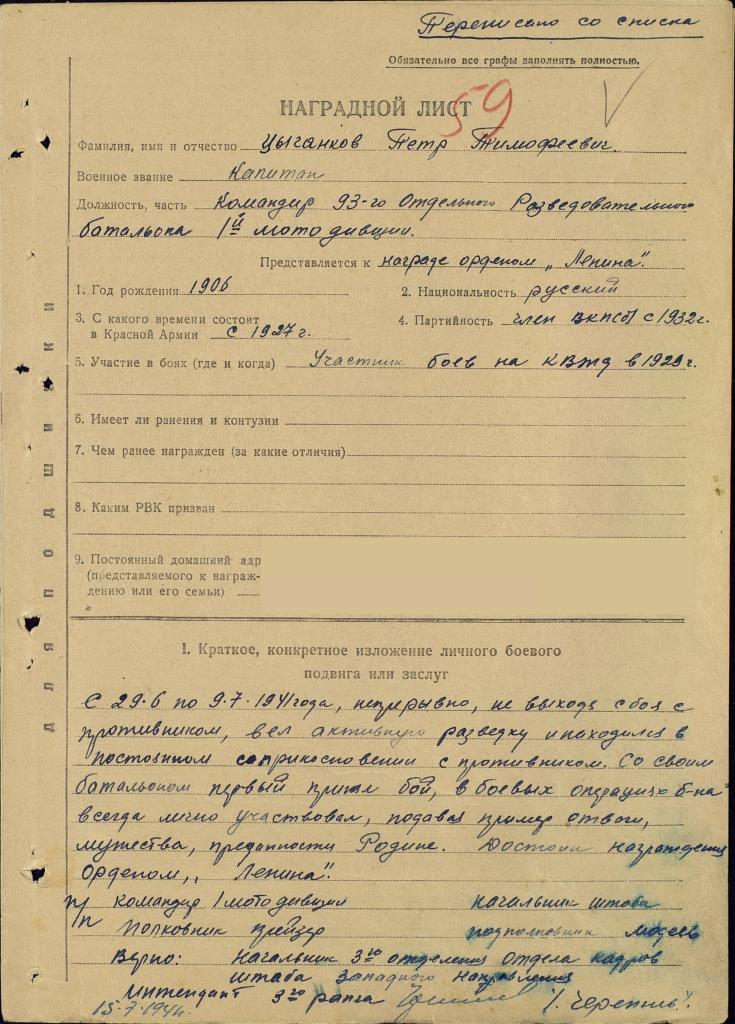 Переписано со списка
Обязательно все графы заполнять полностью.
НАГРАДНОЙ ЛИСТ
59
Фамилия, имя и отчество Цыганков Петр Тимофеевич.
Военное звание Капитан
Должность, часть Командир 93-го Отдельного Разведовательного
батальона 1й мотодивизии.
Представляется к награде орденом „Ленина".
1. Год рождения 1906
2. Национальность русский
3. С какого времени состоит
в Красной Армии с 1927 г.
4. Партийность член ВКП(б) с 1932 г.
5. Участие в боях (где и когда) Участник боев на КВЖД в 1929 г.
6. Имеет ли ранения и контузии
7. Чем ранее награжден (за какие отличия)
8. Каким РВК призван
9. Постоянный домашний адр
(представляемого к награж-
дению или его семьи)
для подшивки
I. Краткое, конкретное изложение личного боевого
подвига или заслуг
С 29.6 по 9.7.1941 года, непрерывно, не выходя с боя с
противником, вел активную разведку и находился в
постоянном соприкосновении с противником. Со своим
батальоном первый принял бой, в боевых операциях б-на
всегда лично участвовал, подавая пример отваги,
мужества, преданности Родине. Достоин награждения
Орденом „Ленина".
п/п командир 1 мотодивизии
Полковник Крейзер
начальник штаба
подполковник Модеев
Верно: Начальник 3го отделения отдела кадров
штаба Западного Направления
Интендант 3го ранга /. Черепить.